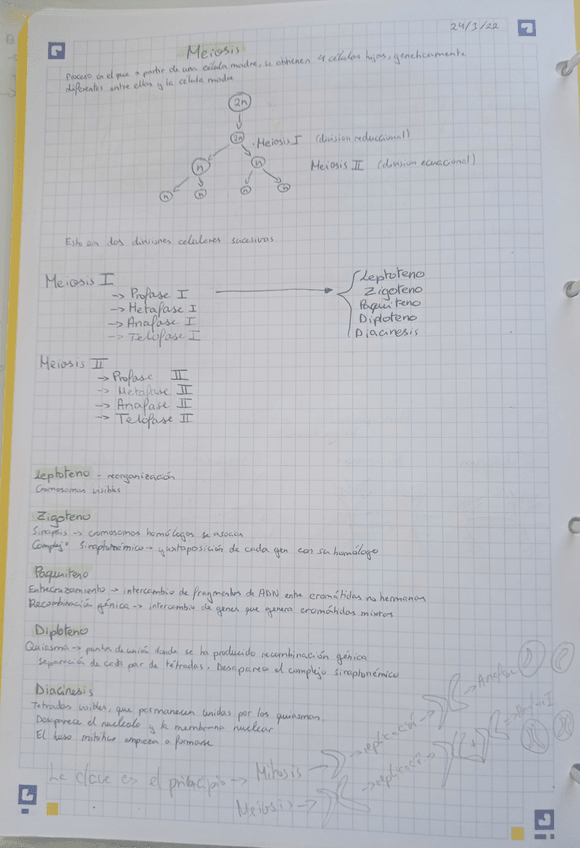 24/3/22
Meiosis
Proceso en el que a partir de una celula madre, se obtienen 4 celulas hijas, geneticamente
diferentes entre ellas y la celula madre
2n
2n
Meiosis I (division reduccional)
n
n
Meiosis II (division ecuacional)
n
n
n
n
Esto en dos divisiones celulares sucesivas
Meiosis I
→ Profase I
→ Metafase I
→ Anafase I
→ Telofase I
Leptoteno
Zigoteno
Paquiteno
Diploteno
Diacinesis
Meiosis II
→ Profase II
→ Metafase II
→ Anafase II
→ Telofase II
Leptoteno - reorganización
Cromosomas visibles
Zigoteno
Sinapsis → cromosomas homólogos se asocian
Complejo sinaptonémico → yuxtaposición de cada gen con su homólogo
Paquiteno
Entrecruzamiento → intercambio de fragmentos de ADN entre cromátidas no hermanas
Recombinación génica → intercambio de genes que genera cromátidas mixtas
Diploteno
Quiasma → punto de unión donde se ha producido recombinación génica
Separación de cada par de tétradas. Desaparece el complejo sinaptonémico
Diacinesis
Tetradas visibles, que permanecen unidas por los quiasmas.
Desaparece el nucleolo y la membrana nuclear
El huso mitotico empieza a formarse
La clave es el principio → Mitosis → replicación → Anafase
Meiosis → replicación → Anafas I